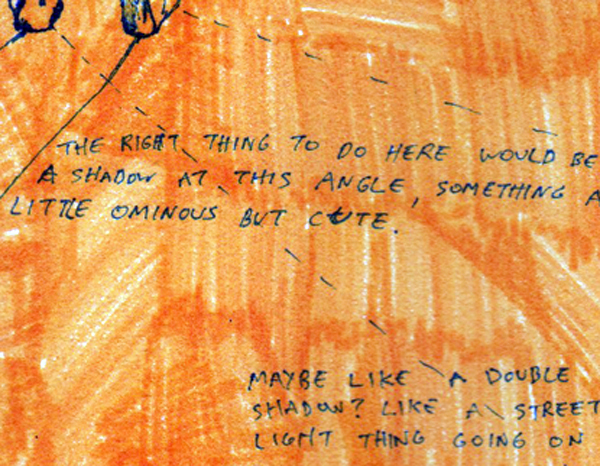 THE RIGHT THING TO DO HERE WOULD BE
A SHADOW AT THIS ANGLE, SOMETHING A
LITTLE OMINOUS BUT CUTE.
MAYBE LIKE A DOUBLE
SHADOW? LIKE A STREET
LIGHT THING GOING ON